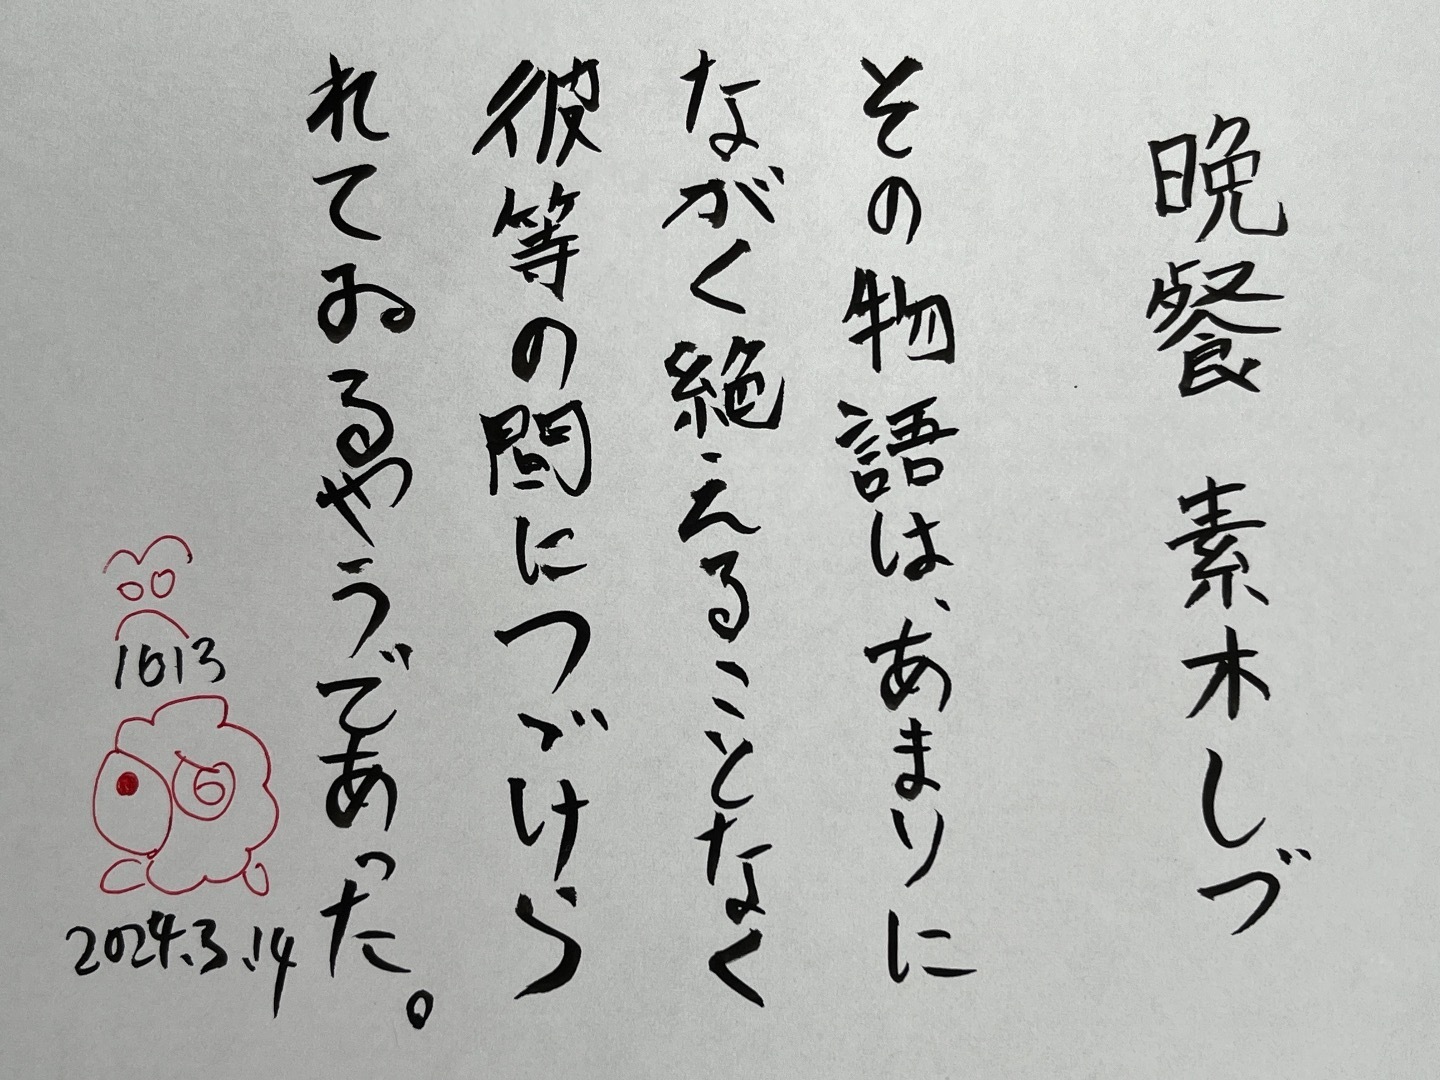 晩餐 素木しづ
その物語は、あまりに
ながく絶えることなく
彼等の間につゞけら
れてゐるやうであった。
1613
2024.3.14